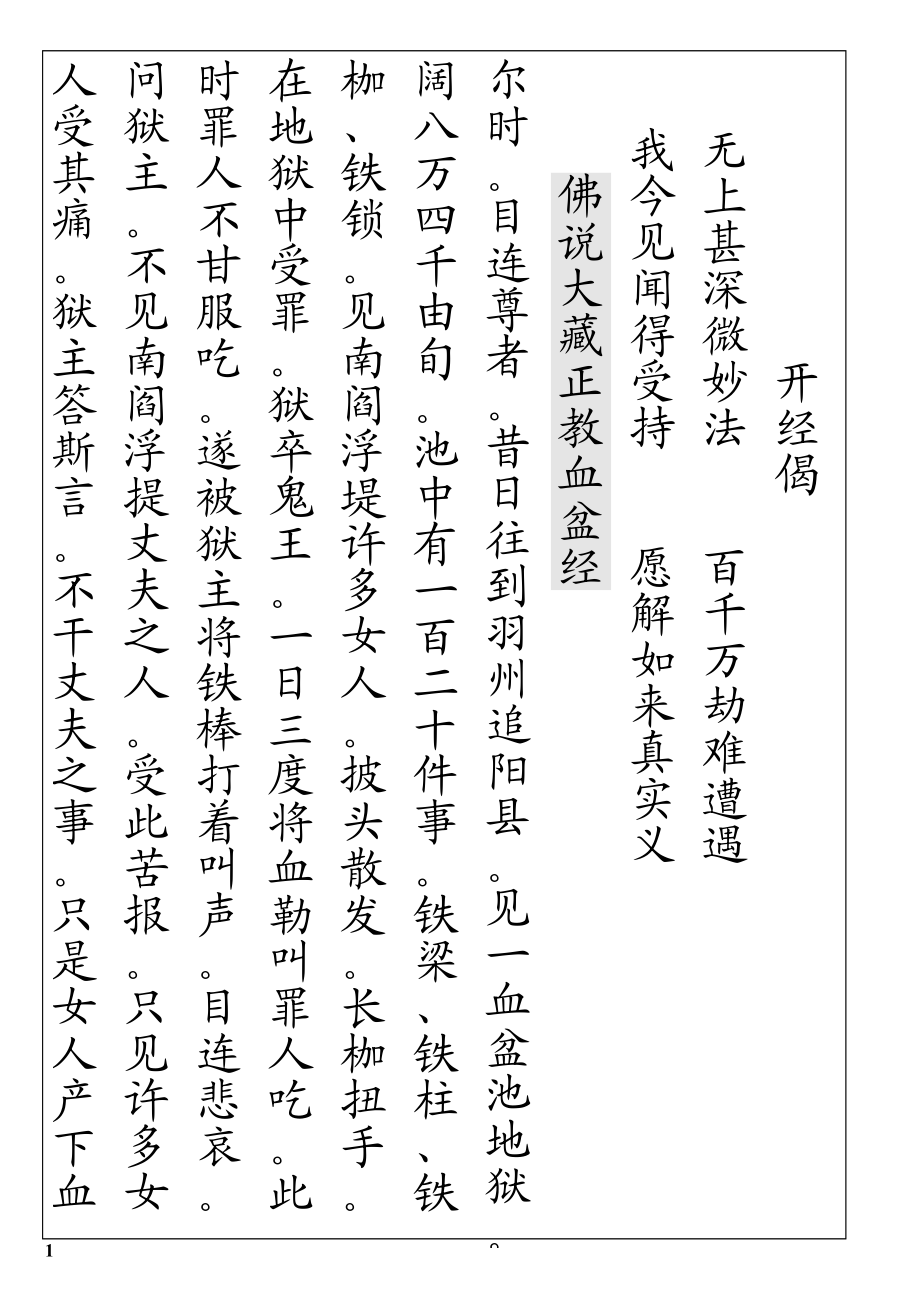 开经偈
无上甚深微妙法　　百千万劫难遭遇
我今见闻得受持　　愿解如来真实义
佛说大藏正教血盆经
尔时。目连尊者。昔日往到羽州追阳县。见一血盆池地狱。
阔八万四千由旬。池中有一百二十件事。铁梁、铁柱、铁
枷、铁锁。见南阎浮堤许多女人。披头散发。长枷扭手。
在地狱中受罪。狱卒鬼王。一日三度将血勒叫罪人吃。此
时罪人不甘服吃。遂被狱主将铁棒打着叫声。目连悲哀。
问狱主。不见南阎浮提丈夫之人。受此苦报。只见许多女
人受其痛。狱主答斯言。不干丈夫之事。只是女人产下血
1